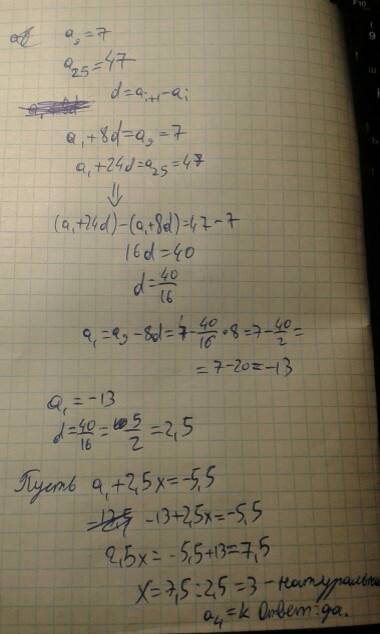 a₉=7
a₂₅=47
d=aᵢ₊₁-aᵢ
a₁+8d=a₉=7
a₁+24d=a₂₅=47
⇓
(a₁+24d)-(a₁+8d)=47-7
16d=40
d=40/16
a₁=a₉-8d=7-40/16•8=7-40/2=
=7-20=-13
a₁=-13
d=40/16=5/2=2,5
Пусть a₁+2,5x=-5,5
-13+2,5x=-5,5
2,5x=-5,5+13=7,5
x=7,5:2,5=3-натурально
a₄=k Ответ:да.